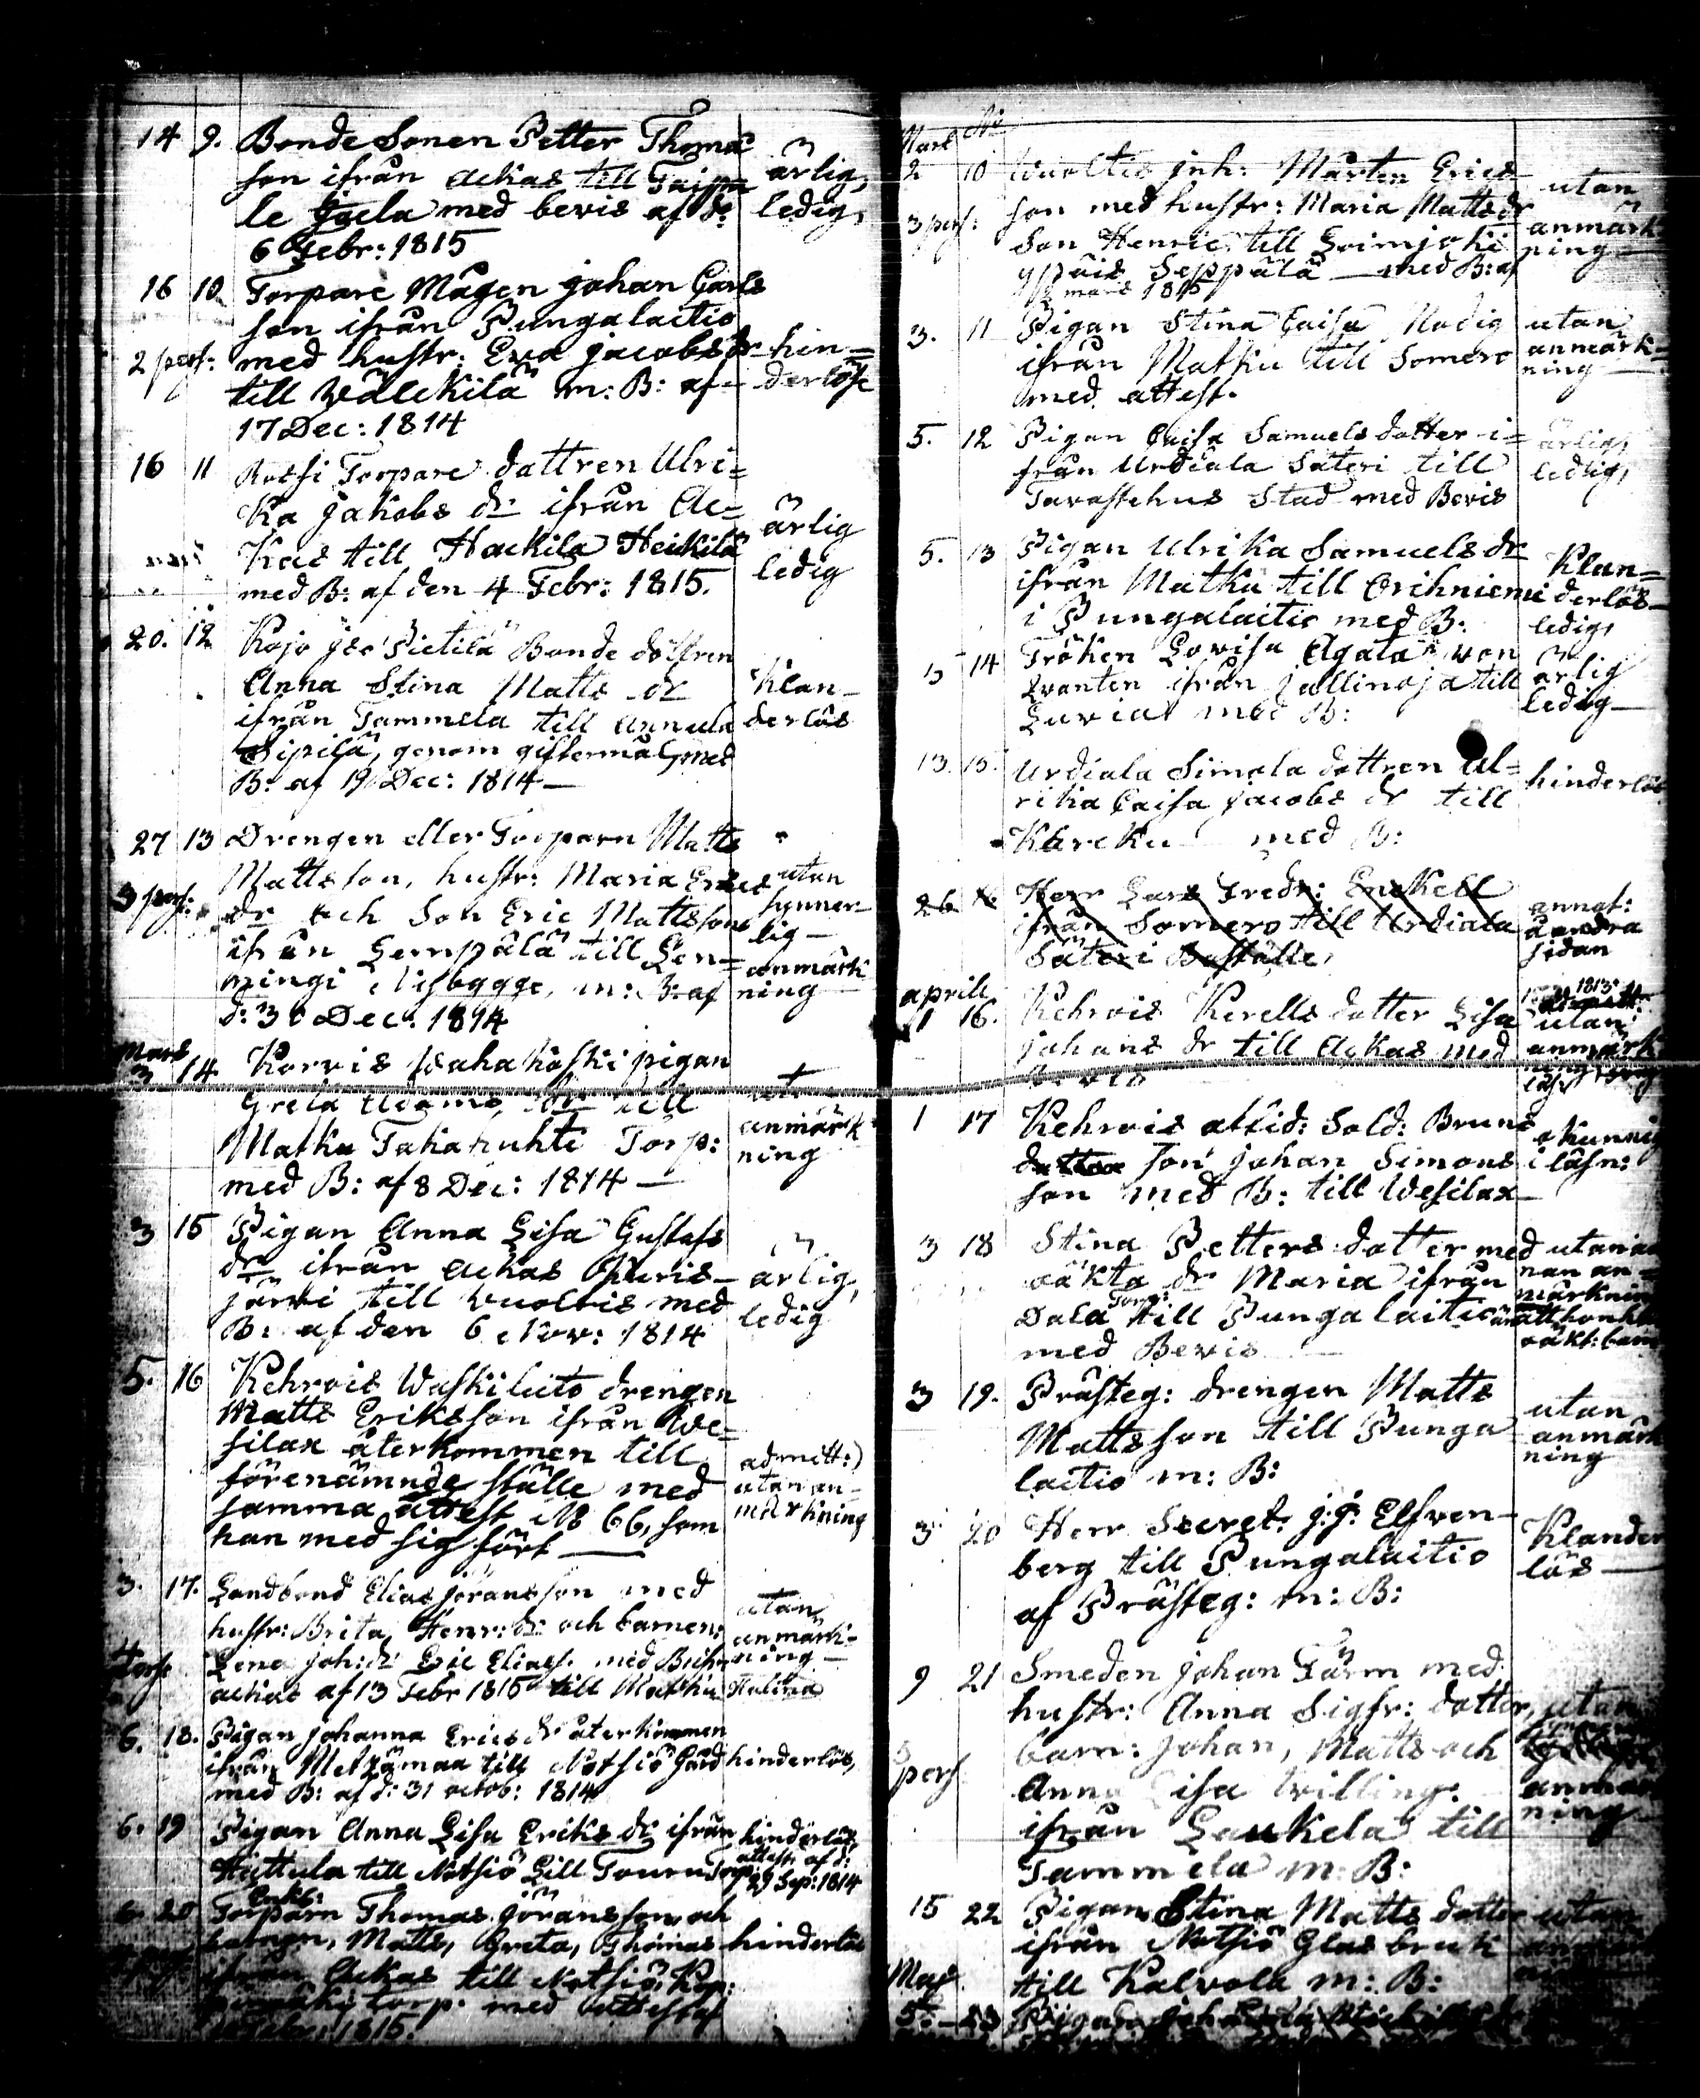 14 9. Bonde Sonen Petter Thomæ
son ifrån Ackas till
le Jaela med bevis af d:
6 Febr: 1815
ärlig,
ledig,
16 10. Torpare Mågen Johan Carls
son ifrån Pungalaitio
2 pers: med hustr: Eva Jacobs dr
till Wälckilä m: B: af
17 Dec: 1814
hin=
derlöse
16 11 Torpare dottren Ulri=
ka Jakobs dr ifrån Ac=
kas till Hackila Heikilä
med B: af den 4 Febr: 1815.
ärlig
ledig
20. 12 Kojo Pietilä Bonde dottren
Anna Stina Matts dr
ifrån Tammela till Annula
Sipilä, genom giftermål med
B: af 19 Dec: 1814
Klan-
derlös
27 13 Drengen eller Torparn Matts
Mattsson, hustr: Maria Erics
3 pers: dr och Son Eric Mattsson
ifrån Lempälä till
Nisbygge, m: B: af
d: 30 Dec: 1814
utan
synner-
lig
anmärk
ning
Mars
3 14 Korvis pigan
Greta Adams dr till
Matku Torp:
med B: af 8 Dec: 1814
anmärk
ning
3 15 Pigan Anna Lisa Gustafs
dr ifrån Ackas
järvi till Vuoltis med
B: af den 6 Nov: 1814
ärlig,
ledig
5. 16 Kehrois Waskiluto drengen
Matts Eriksson ifrån We=
silax återkommen till
förenämnde ställe med
samma attest No 66, som
han med sig fört
admitt:)
utan an-
märkning
3. 17. Landbond Elias Jöransson med
hustr: Brita Henr: dr och barnen:
Lena Joh: dr Eric Eliass. med
af 13 Febr 1815 till Matku
utan
anmärk-
ning
6. 18. Pigan Johanna Erics dr återkommen
ifrån Metzämaa till Notsiö Gård
med B: af d: 31 octob: 1814
hinderlös,
6. 19 Pigan Anna Lisa Eriks dr ifrån
Hattula till Notsiö Lill Torp
hinderlös,
attest af d:
29 Sep: 1814
6 20 Torparn Thomas Jöransson och
barnen, Matts, Greta, Thomas
ifrån Ackas till Notsiö
torp. med attest af
Febr: 1815.
hinderlöse
Mart No
2 10 Vuoltis Inh: Mårten Erics
3 pers: son med hustr: Maria Matts dr
Son Henric till Loimjoki
Ypäis Seppälä med B: af
mars 1815
utan
anmärk
ning
3. 11 Pigan Stina Caisa Nodig
ifrån Matku till Somero
med attest.
utan
anmärk=
ning
5. 12 Pigan Caisa Samuels dotter i=
från Urdiala Säteri till
Tavastehus Stad med Bevis
ärlig,
ledig,
5. 13 Pigan Ulrika Samuels dr
ifrån Matku till Orihniemi
i Pungalaitio med B:
Klan=
derlös
ledig,
5 14 Fröken Lovisa Agata von
Qvanten ifrån Jallinoja till
med B:
ärlig
ledig
13. 15. Urdiala Simola dottren Ul=
rika Caisa Jacobs dr till
Kärcku med B:
hinderlös
26 Herr Lars Fredr: Enckell
ifrån Somero till Urdiala
Säteri Boställe,
annot:
å andra
sidan
aprill
1 16. Kehrois Kerells dotter Lisa
Johans dr till Ackas med
Bevis
1813
utan
anmärk
ning
1 17 Kehrois afsked: Sold: Bruns
son Johan Simons
son med B: till Wesilax
okunnig
i läsn:
3 18 Stina Petters dotter med
oäkta dr Maria ifrån
Dala Torp: till Pungalaitio
med Bevis
utan an
nan an=
märkning
än att hon har
oäkt: barn
3 19. Prästeg: drengen Matts
Mattsson till Punga
laitio m: B:
utan
anmärk
ning
3 20 Herr Secret. J: J: Elfven-
berg till Pungalaitio
af Prästeg: m: B:
Klander
lös
9 21 Smeden Johan Färm med
hustr: Anna Sigfr: dotter,
5 pers barn: Johan, Matts och
Anna Lisa trilling:
ifrån Laukela till
Tammela m: B:
utan
anmärk
ning
15 22 Pigan Stina Matts dotter
ifrån Notsiö Glasbruk
till Kalvola m: B:
utan
Maj
5 23 Pigan